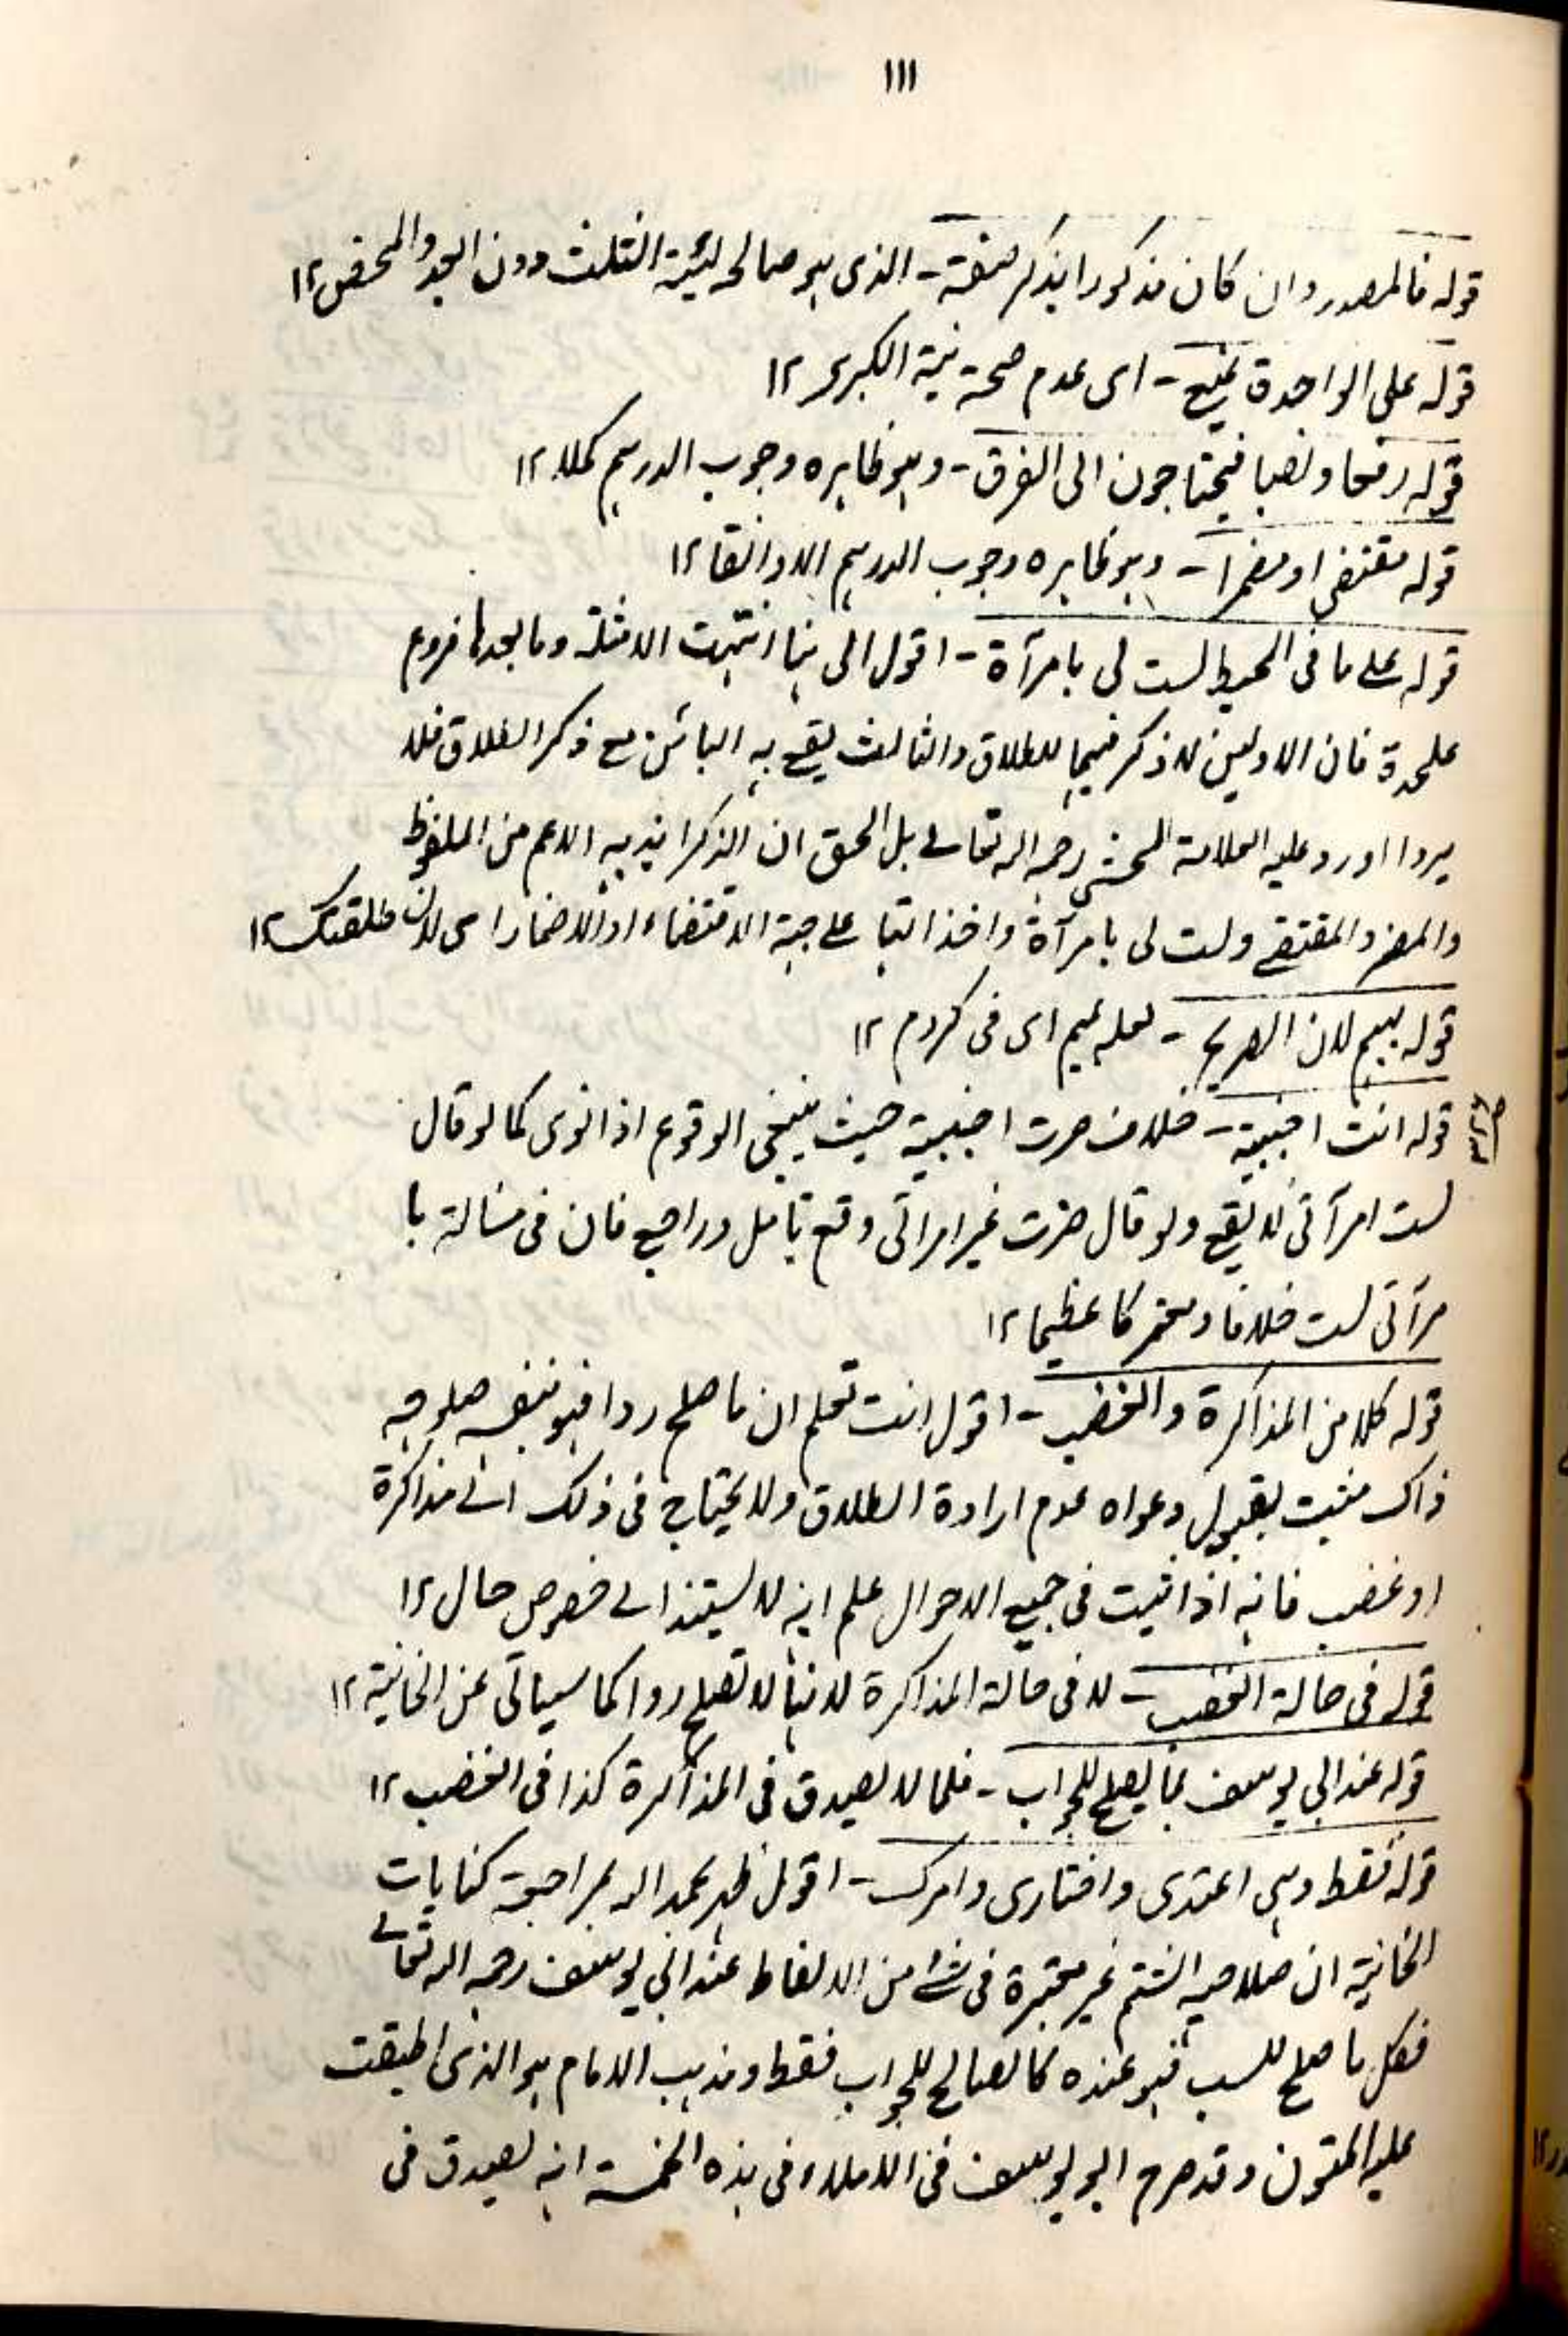 ۱۱۱
قوله فالمصدر وان كان مذكورا بذكر صفته - الذى هو صالح لنية الثلث دون العدد المحض ۱۲
قوله على الواحدة يمنع - اى عدم صحة نية الكبرى ۱۲
قوله رفعا ونصبا فيحتاجون الى الفرق - وهو ظاهره وجوب الدرهم كملا ۱۲
قوله مقتضى او مضمرا - وهو ظاهره وجوب الدرهم الا دانقا ۱۲
قوله على ما فى المحيط لست لى بامرأة - اقول الى هنا انتهت الامثلة وما بعدها فروع
علحدة فان الاوليين لا ذكر فيهما للطلاق والثالث يقع به البائن مع ذكر الطلاق فلا
يرد ما اورد عليه العلامة المحشى رحمه الله تعالى بل الحق ان الذكر اريد به الاعم من الملفوظ
والمضمر والمقتضى ولست لى بامرأة واخذا تبا على جهة الاقتضاء او الاضمار اى لانى طلقتك ۱۲
قوله بهم لان الصريح - لعله بميم اى فى كردم ۱۲
قوله انت اجنبية - خلاف صرت اجنبية حيث ينبغى الوقوع اذا نوى كما لو قال
لست امرأتى لا يقع ولو قال صرت غير امرأتى وقع تأمل وراجع فان فى مسألة با
مرأتى لست خلافا ومعتركا عظيما ۱۲
قوله كلا من المذاكرة والغضب - اقول انت تعلم ان ما صلح ردا فهو بنفس صلوحه
ذاك مثبت لقبول دعواه عدم ارادة الطلاق ولا يحتاج فى ذلك الى مذاكرة
او غضب فانه اذا ثبت فى جميع الاحوال علم انه لا يستند الى خصوص حال ۱۲
قوله فى حالة الغضب - لا فى حالة المذاكرة لانها لا تصلح ردا كما سيأتى عن الخانية ۱۲
قوله عند ابى يوسف بما يصلح للجواب - فكما لا يصدق فى المذاكرة كذا فى الغضب ۱۲
قوله فقط وهى اعتدى واختارى وامرك - اقول ظهر بحمد الله بمراجعة كنايات
الخانية ان صلاحية الشتم غير معتبرة فى شئ من الالفاظ عند ابى يوسف رحمه الله تعالى
فكل ما صلح للسب فهو عنده كالصالح للجواب فقط ومذهب الامام هو الذى اطبقت
عليه المتون وقد صرح ابو يوسف فى الاملاء فى هذه الخمسة انه يصدق فى